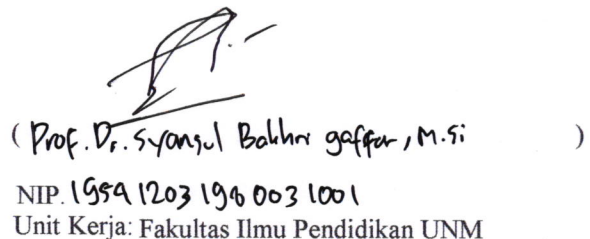 ( Prof. Dr. Syamsul Bakhri gaffar, M.Si )
NIP. 19591203 198003 1001
Unit Kerja: Fakultas Ilmu Pendidikan UNM